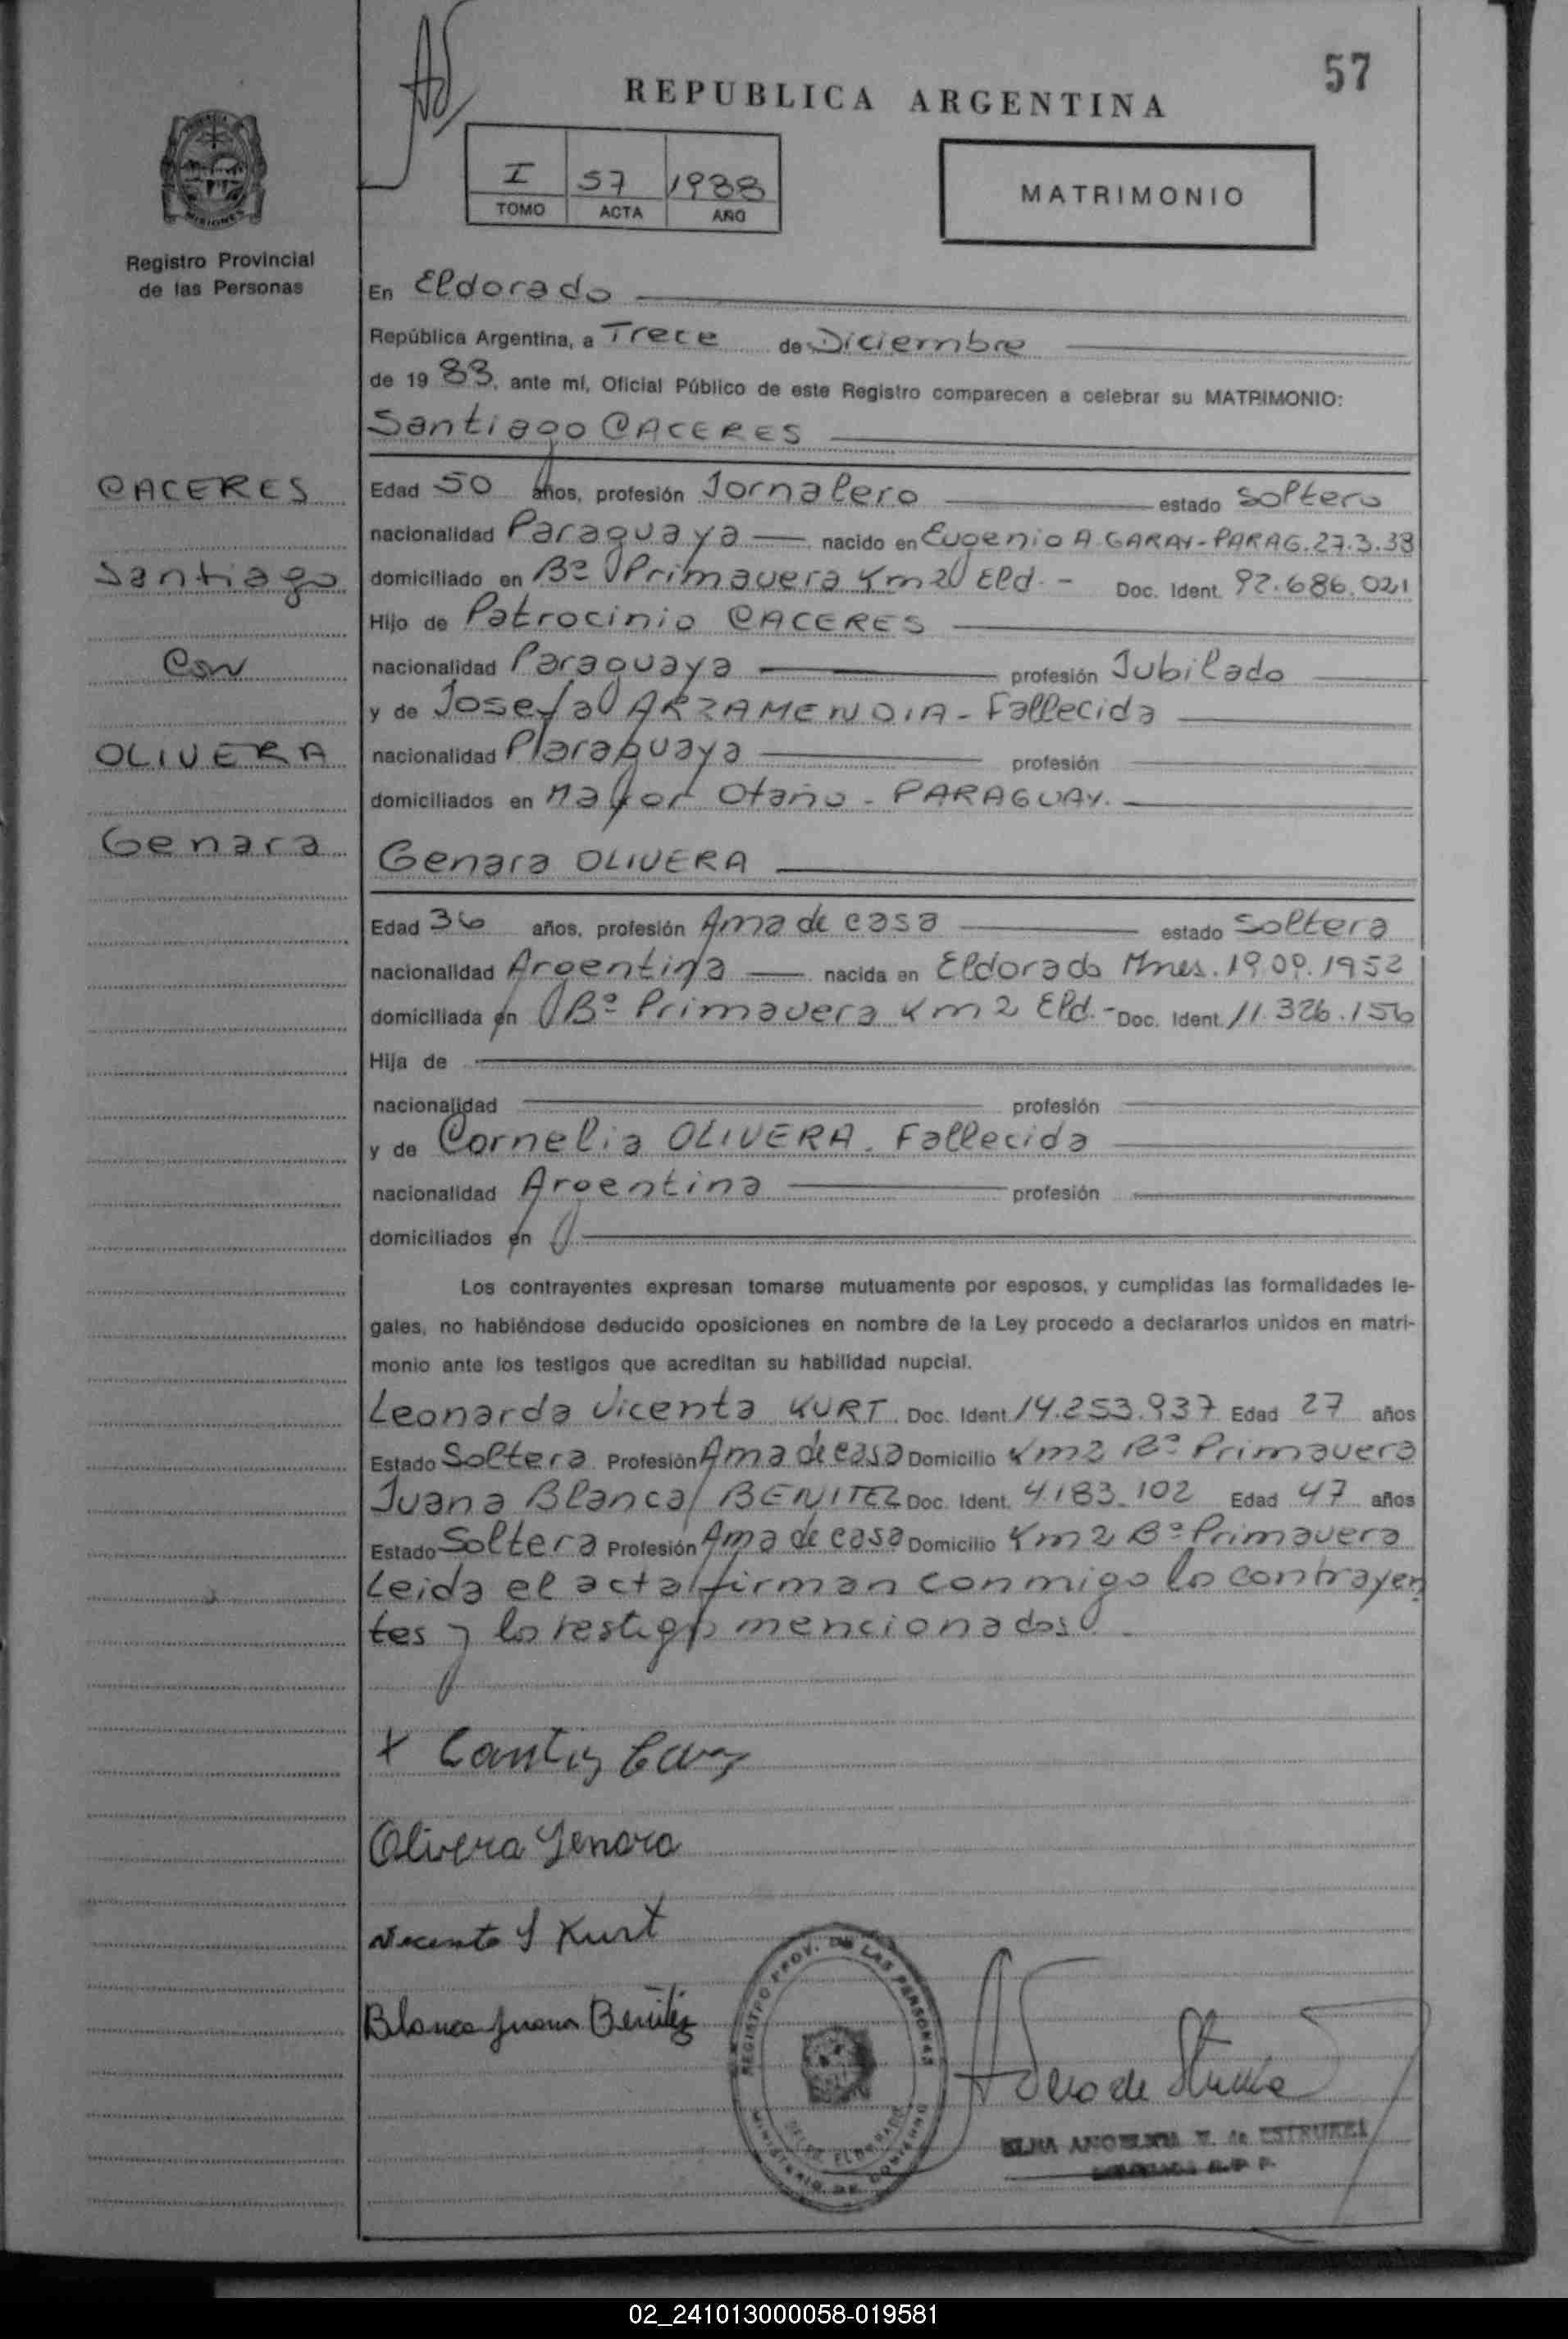 57
REPUBLICA ARGENTINA
I 57 1988
TOMO ACTA AÑO
MATRIMONIO
MISIONES
Registro Provincial
de las Personas
En Eldorado
República Argentina, a Trece de Diciembre
de 19 88, ante mí, Oficial Público de este Registro comparecen a celebrar su MATRIMONIO:
Santiago CACERES
CACERES
Santiago
Con
OLIVERA
Genara
Edad 50 años, profesión Jornalero estado Soltero
nacionalidad Paraguaya nacido en Eugenio A GARAY-PARAG. 27.3.38
domiciliado en Bº Primavera Km 2 Eld. - Doc. Ident. 92.686.021
Hijo de Patrocinio CACERES
nacionalidad Paraguaya profesión Jubilado
y de Josefa ARZAMENDIA - Fallecida
nacionalidad Paraguaya profesión
domiciliados en Mayor Otaño - PARAGUAY.
Genara OLIVERA
Edad 36 años, profesión Ama de casa estado Soltera
nacionalidad Argentina nacida en Eldorado Mnes. 19.09.1952
domiciliada en Bº Primavera Km 2 Eld. - Doc. Ident. 11.326.156
Hija de
nacionalidad profesión
y de Cornelia OLIVERA. Fallecida
nacionalidad Argentina profesión
domiciliados en
Los contrayentes expresan tomarse mutuamente por esposos, y cumplidas las formalidades le-
gales, no habiéndose deducido oposiciones en nombre de la Ley procedo a declararlos unidos en matri-
monio ante los testigos que acreditan su habilidad nupcial.
Leonarda Vicenta KURT Doc. Ident. 14.253.937 Edad 27 años
Estado Soltera Profesión Ama de casa Domicilio Km 2 Bº Primavera
Juana Blanca BENITEZ Doc. Ident. 4.183.102 Edad 47 años
Estado Soltera Profesión Ama de casa Domicilio Km 2 Bº Primavera
Leida el acta firman conmigo lo contrayen
tes y lo testigo mencionados.
Olivera Genara
Vicenta Kurt
Blanca Juana Benitez
REGISTRO PROV. DE LAS PERSONAS
MINISTERIO DE GOBIERNO
ELDORADO
02_241013000058-019581